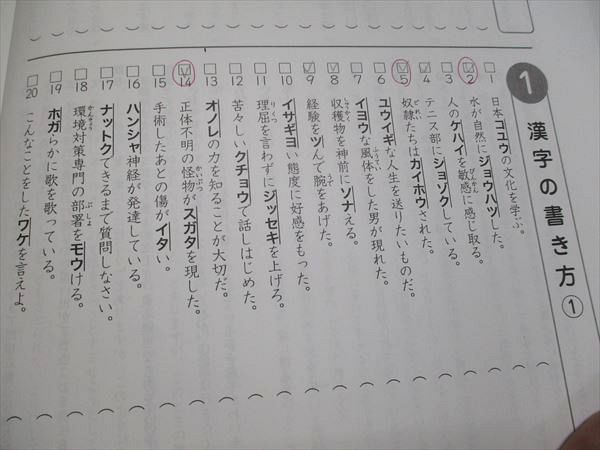 1 漢字の書き方①
1 日本コユウの文化を学ぶ。
2 水が自然にジョウハツした。
びんかん
3 人のケハイを敏感に感じ取る。
4 テニス部にショゾクしている。
どれい
5 奴隷たちはカイホウされた。
6 ユウイギな人生を送りたいものだ。
7 イヨウな風体をした男が現れた。
しゅうかく
8 収穫物を神前にソナえる。
うで
9 経験をツんで腕をあげた。
10 イサギヨい態度に好感をもった。
りくつ
11 理屈を言わずにジッセキを上げろ。
12 苦々しいクチョウで話しはじめた。
13 オノレの力を知ることが大切だ。
かいぶつ
14 正体不明の怪物がスガタを現した。
15 手術したあとの傷がイタい。
16 ハンシャ神経が発達している。
17 ナットクできるまで質問しなさい。
かんきょう ぶしょ
18 環境対策専門の部署をモウける。
19 ホガらかに歌を歌っている。
20 こんなことをしたワケを言えよ。